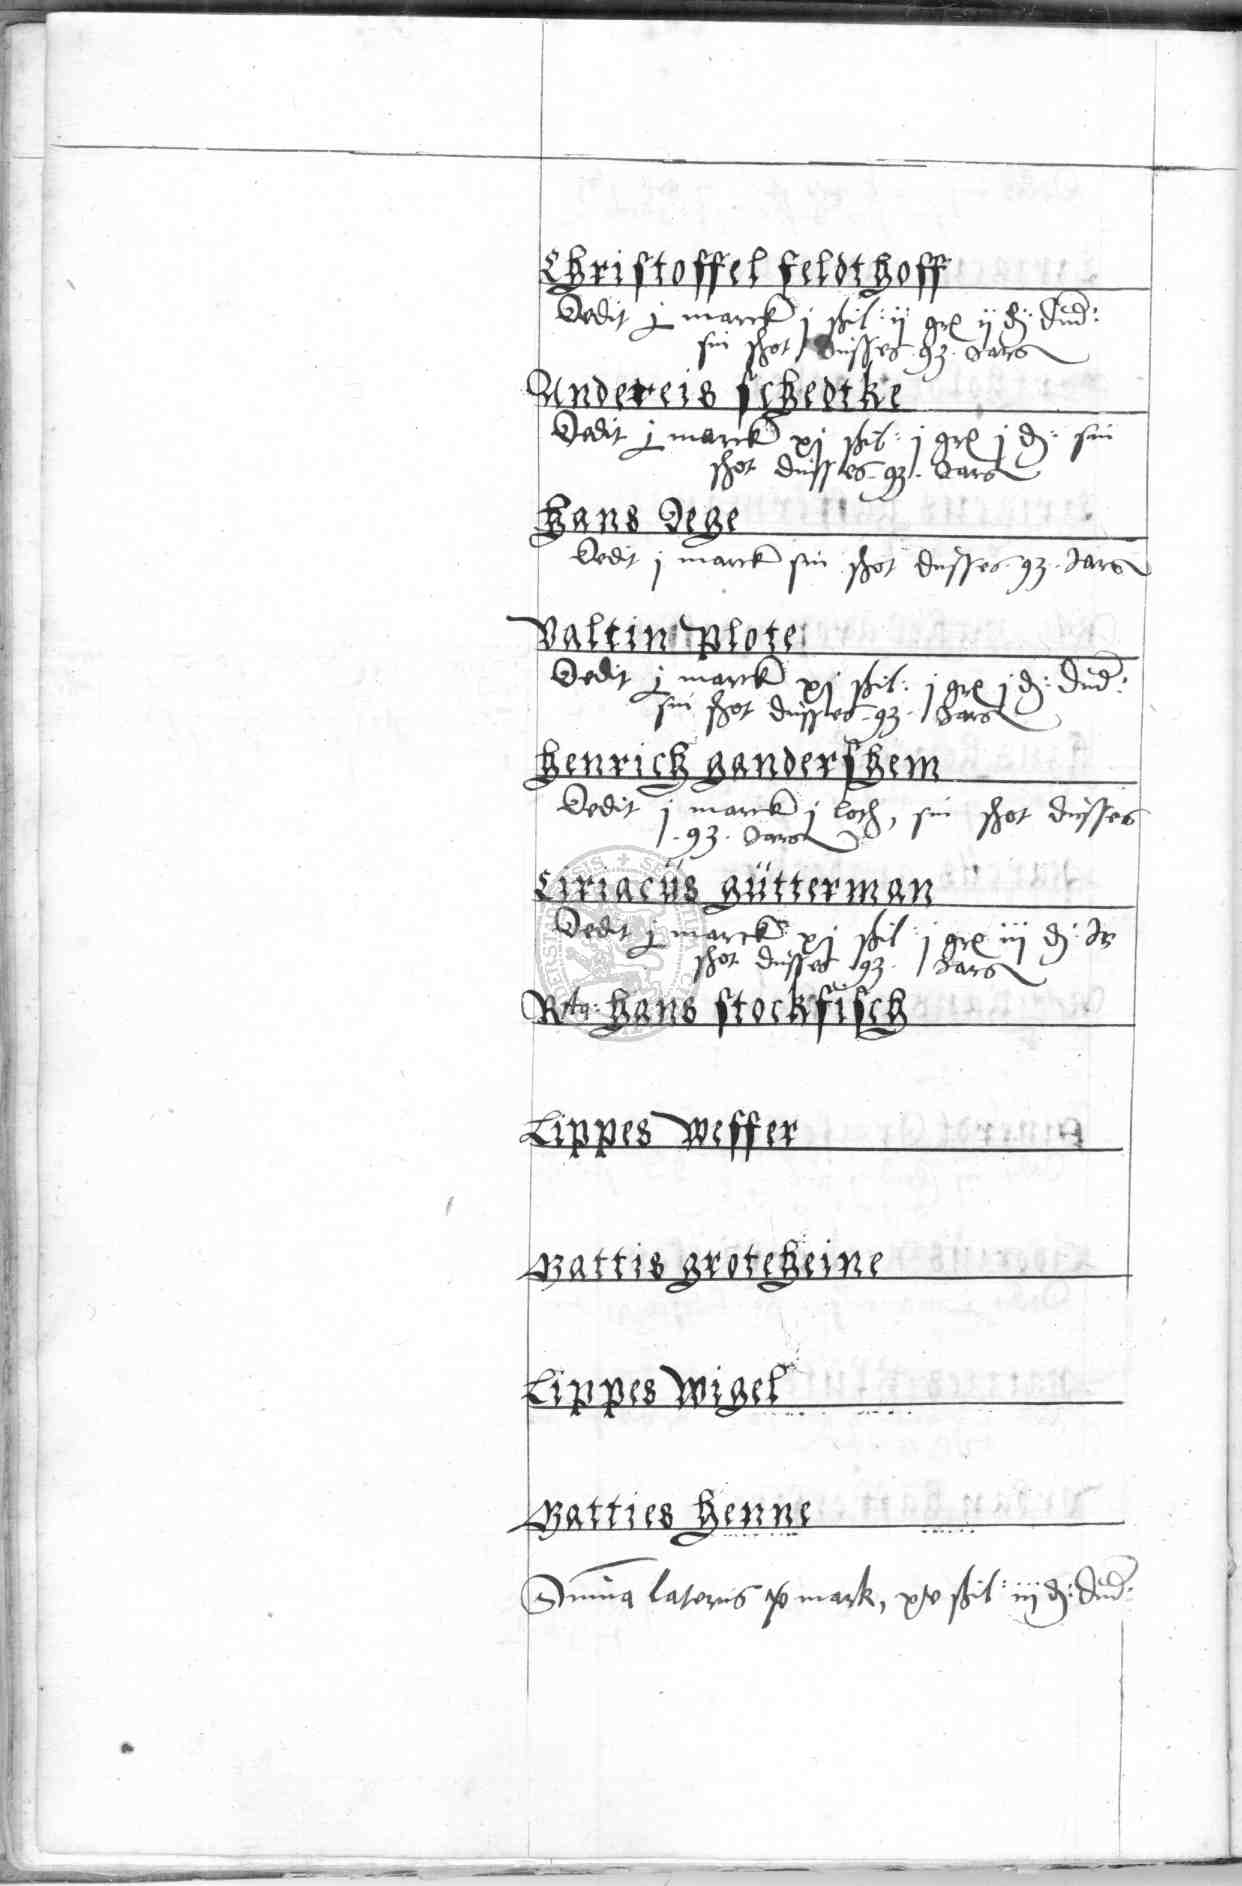 Christoffel feldthoff
Dedit j marck j ßil: ij grl ij ₰: dud:
sin shot dusses 93. Jars
Andereis schedtke
Dedit j marck xj ßil: j grl j ₰: sin
shot dusses 93. Jars
Hans Jege
Dedit j marck sin shot dusses 93. Jars
Valtin plote
Dedit j marck xj ßil: j grl j ₰: dud:
sin shot dusses 93. Jars
Henrich gandershem
Dedit j marck j loth, sin shot dusses
93. Jars
Ciriacüs gütterman
Dedit j marck xj ßil: j grl iij ₰:
shot dusses 93. Jars
Hans stockfisch
Lippes Weffer
Mattis groteheine
Lippes Wigel
Matties Henne
Suma lateris mark, xv ßil: iij ₰: dud: